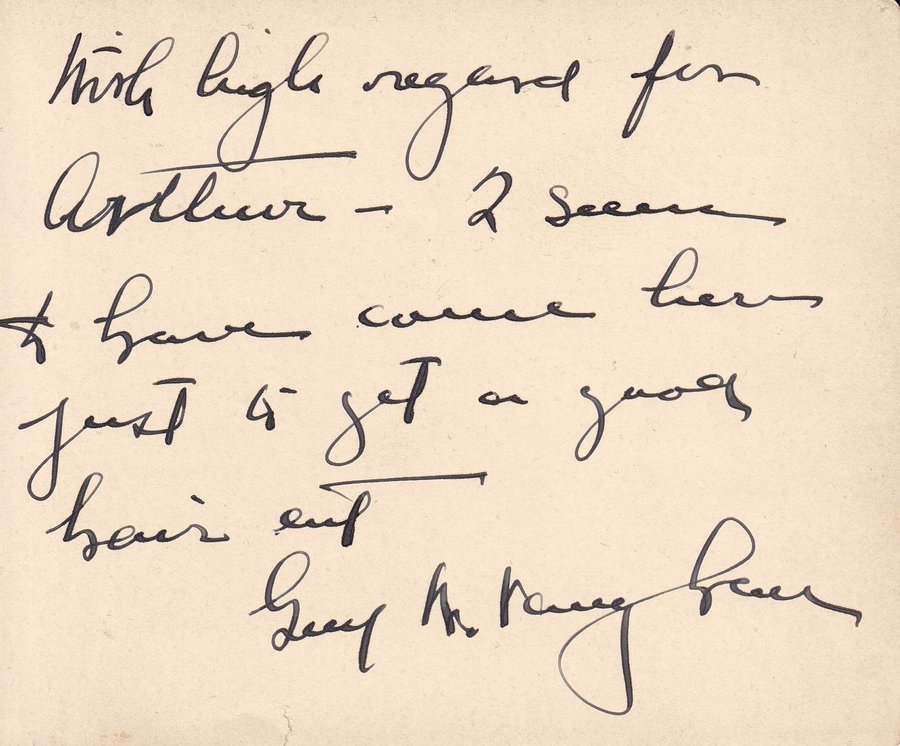 With high regard for
Arthur - I seem
to have come here
just to get a good
hair cut
Guy W. Vaughan